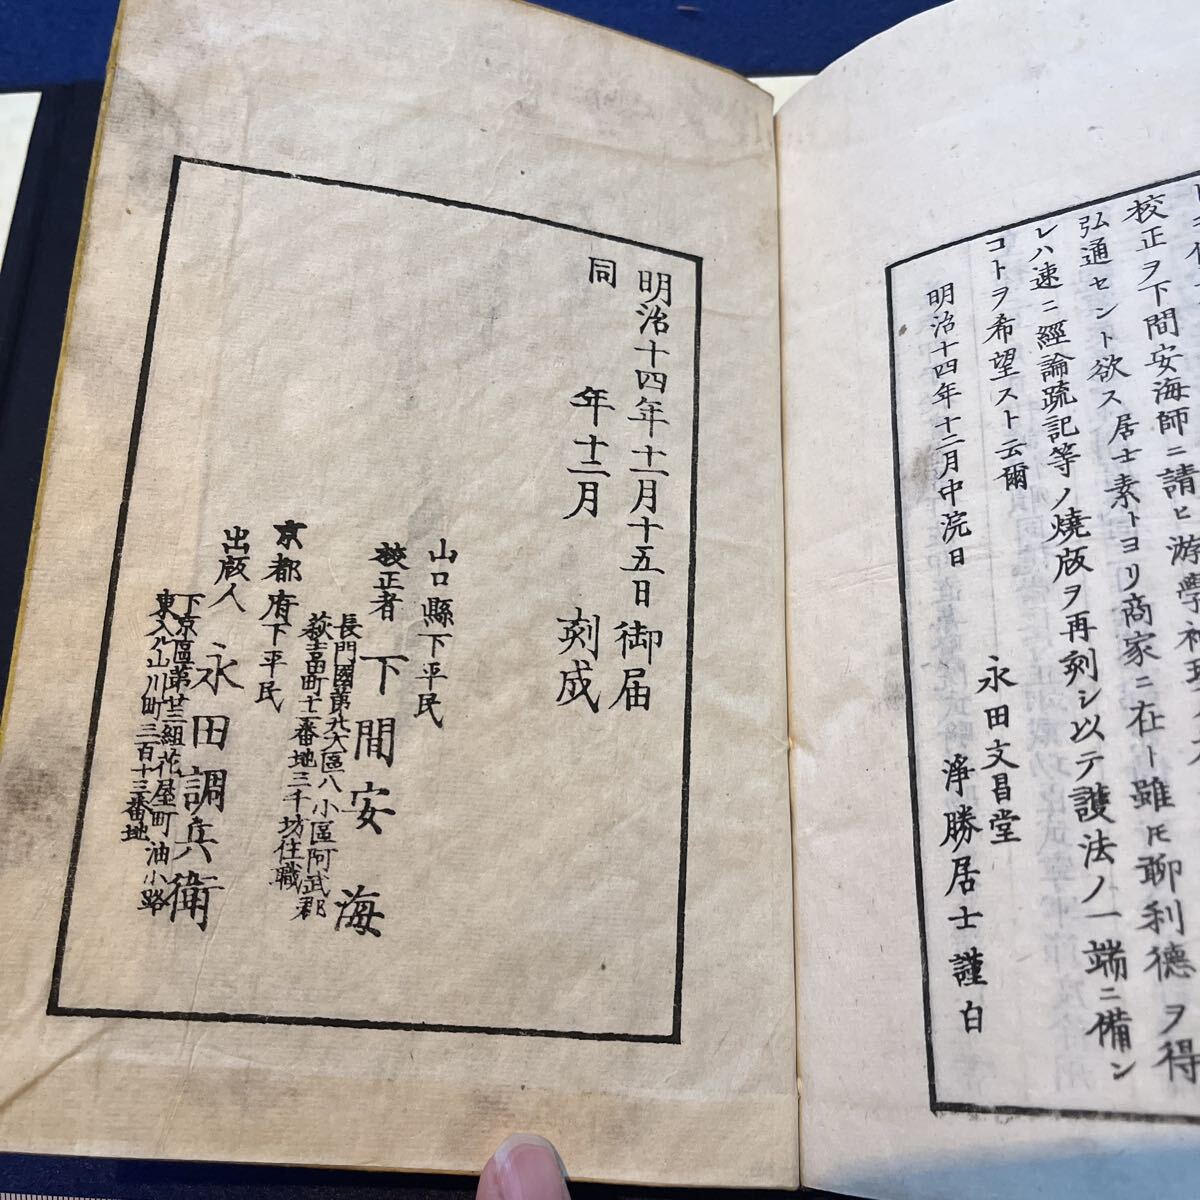 校正ヲ下間安海師ニ請ヒ游學
弘通セント欲ス居士素トヨリ商家ニ在ト雖𪜈聊利德ヲ得
レハ速ニ經論疏記等ノ燒版ヲ再刻シ以テ護法ノ一端ニ備ン
コトヲ希望スト云爾
明治十四年十二月中浣日
永田文昌堂
淨勝居士謹白
明治十四年十一月十五日御届
同年十二月刻成
山口縣下平民
校正者 下間安海
長門國第九大區八小區阿武郡
萩吉田町十一番地三千坊住職
京都府下平民
出版人 永田調兵衛
下京區第廿三組花屋町油小路
東入ル山川町三百十三番地